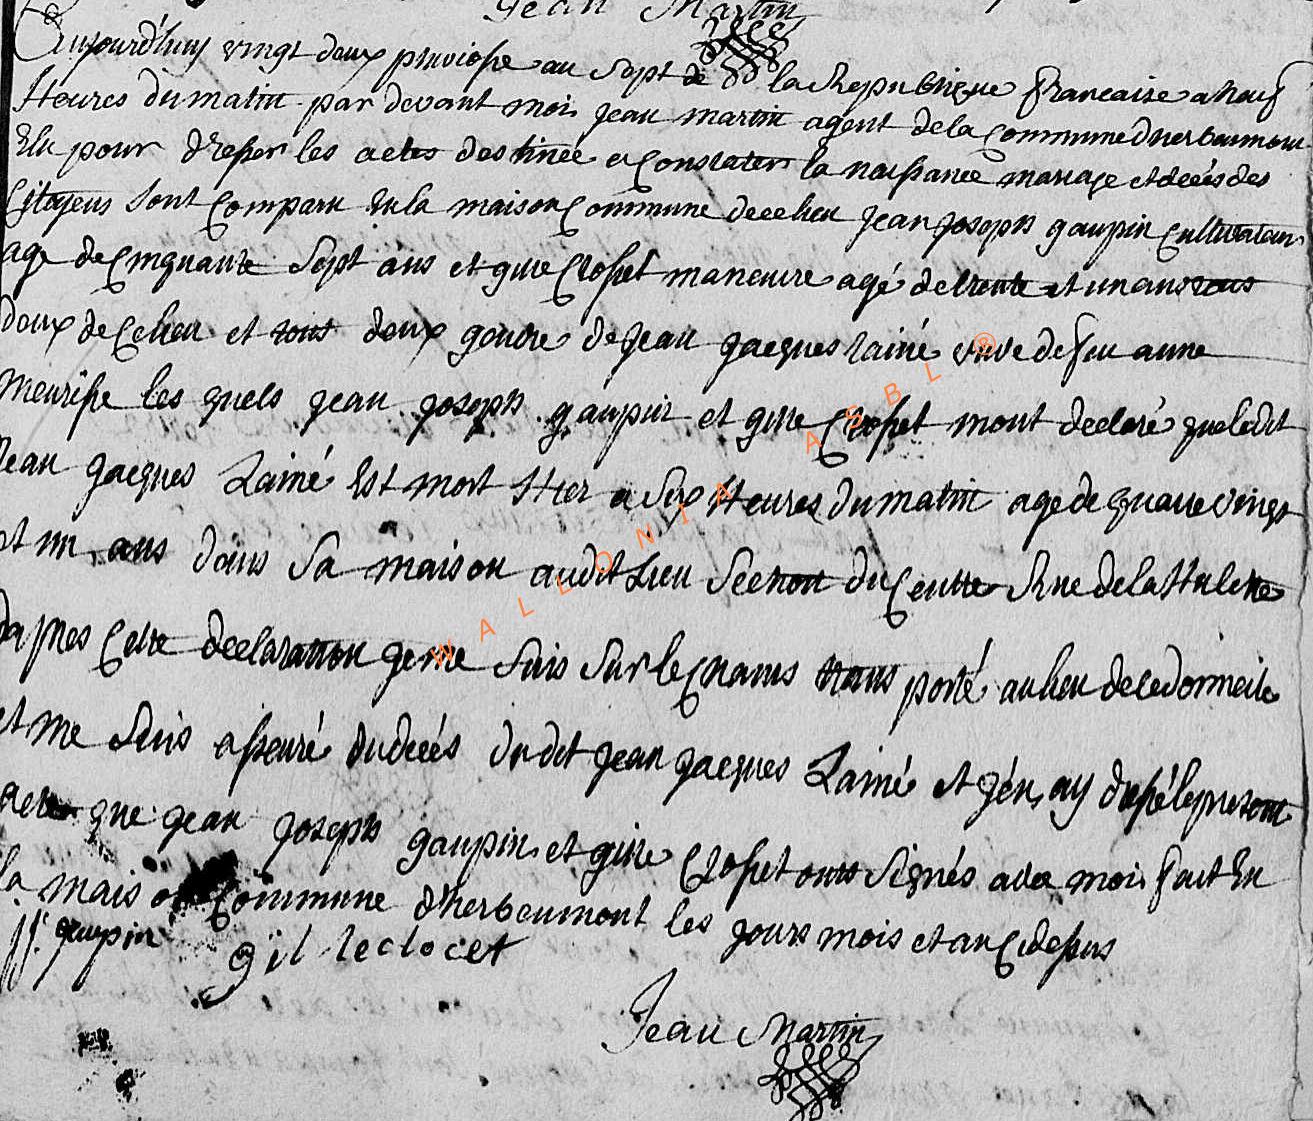 Jean Martin
Aujourd'huy vingt deux pluviose au Sept de la Republique francaise a neuf
Heures du matin par devant moi jean martin agent de la Commune d'herbeumont
Elu pour dresser les actes destinée a Constater la naissance mariage et décés des
Citoyens Sont Comparu En la maison Commune de ce lieu jean joseph gaupin Cultivateur
age de Cinquante Sept ans et gille Closset maneuvre agé de trente et un ans tous
deux de Ce lieu et tous deux gendre de jean jacques lainé veuve de feu anne
meurisse les quels jean joseph gaupin et gille Closset mont declaré que ledit
jean jacques Lainé Est mort Hier a Six Heures du matin age de quatre vingt
et un ans dans Sa maison audit Lieu Section du Centre Rue de la Hulette
dapres Cette declaration je me Suis Sur le Champs trans porté au lieu de ce domicile
et me Suis asseuré du decés du dit jean jacques Lainé et j'én ay dressé le present
acte que jean joseph gaupin et gille Closset onts Signés avec moi fait En
la maison Commune d'herbeumont les jours mois et an Cidessus
jj. gaupin
gil leclocet
Jean Martin
WALLONIA ASBL ®